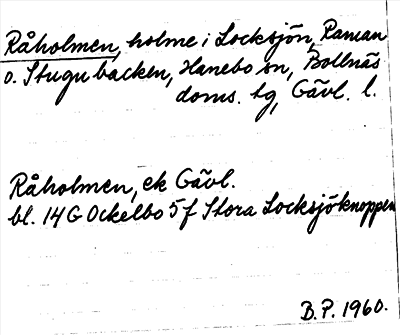 Råholmen, holme i Locksjön, Raman
o. Stugubacken, Hanebo sn, Bollnäs
doms. tg, Gävl. l.
Råholmen, ek Gävl.
bl. 14 G Ockelbo 5 f Stora Locksjöknoppen
B.P. 1960.